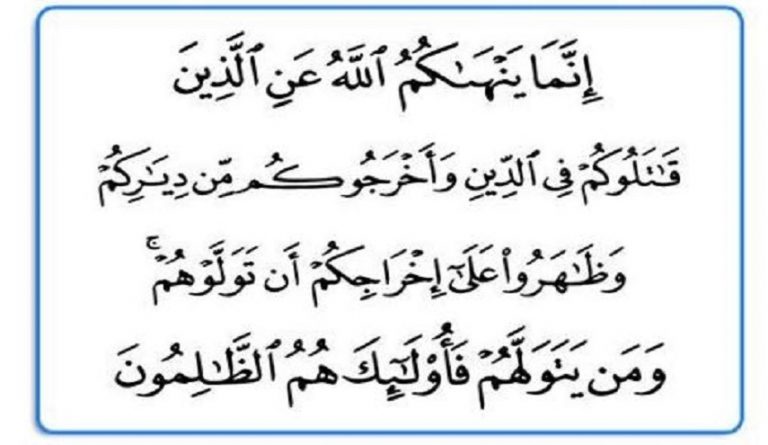 إِنَّمَا يَنْهَىٰكُمُ ٱللَّهُ عَنِ ٱلَّذِينَ
قَـٰتَلُوكُمْ فِى ٱلدِّينِ وَأَخْرَجُوكُم مِّن دِيَـٰرِكُمْ
وَظَـٰهَرُوا۟ عَلَىٰٓ إِخْرَاجِكُمْ أَن تَوَلَّوْهُمْ ۚ
وَمَن يَتَوَلَّهُمْ فَأُو۟لَـٰٓئِكَ هُمُ ٱلظَّـٰلِمُونَ